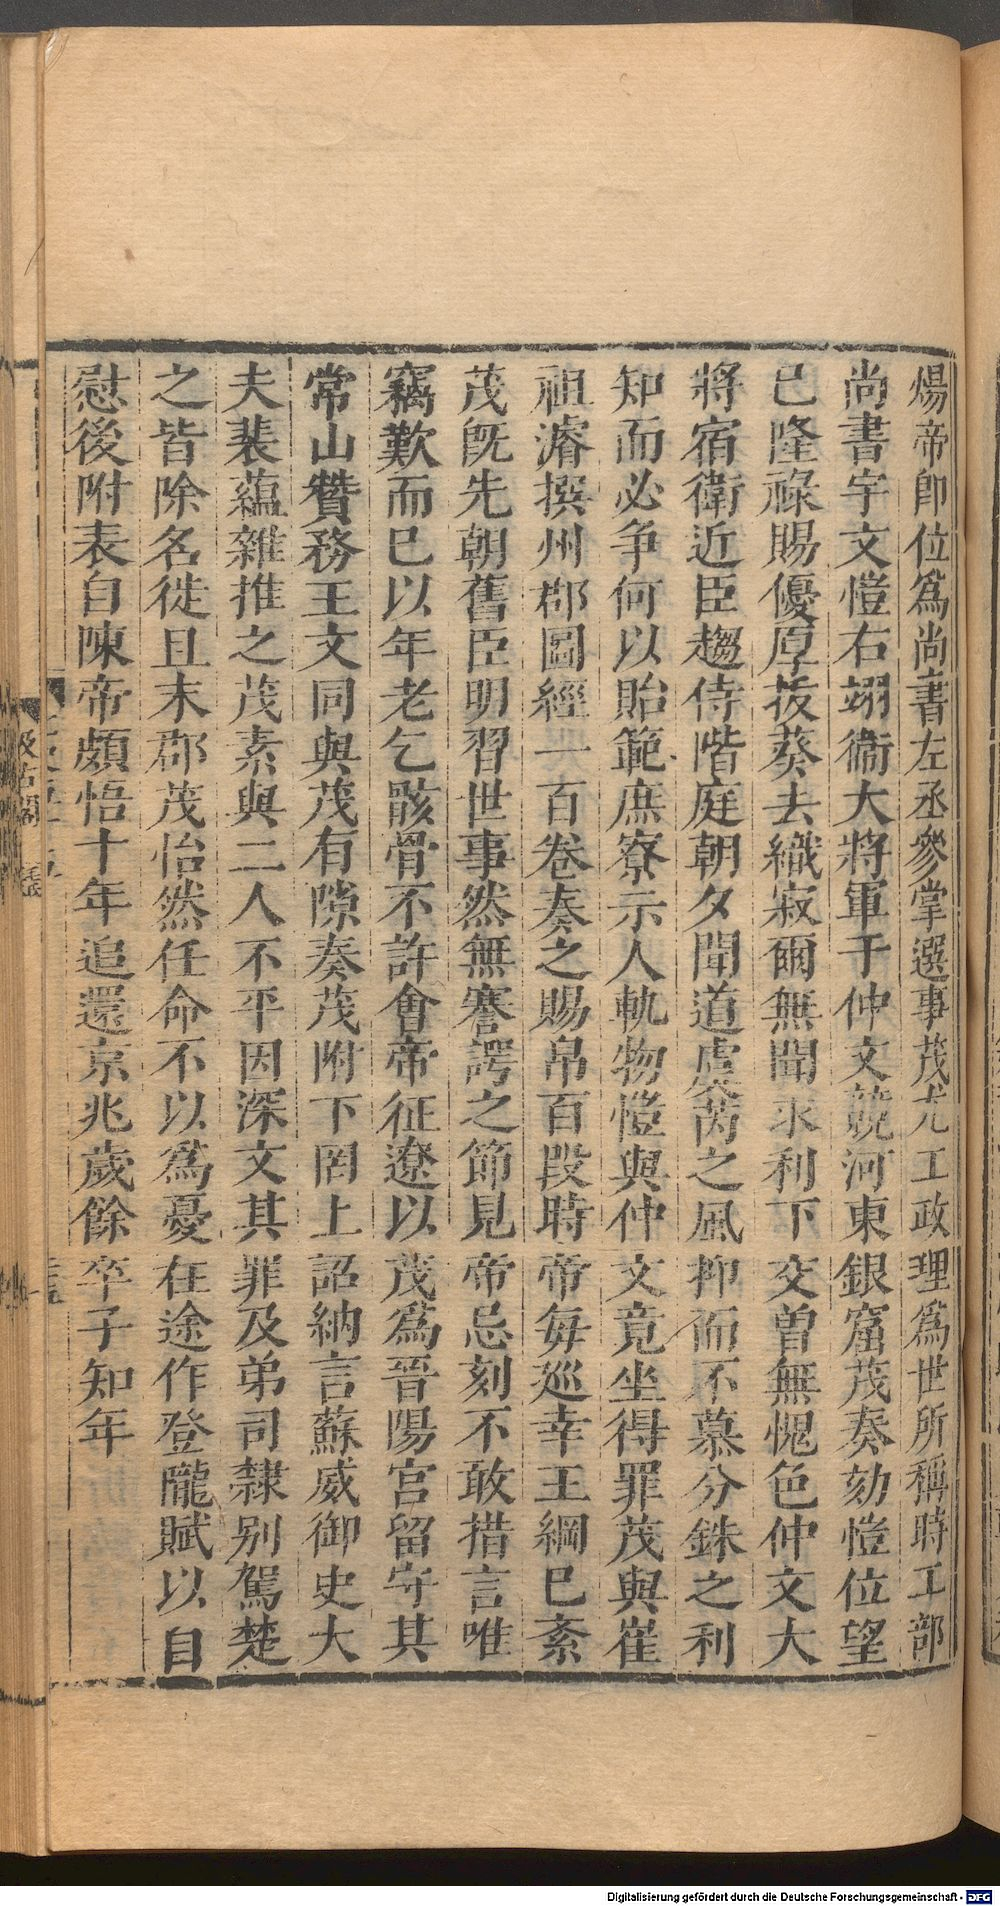 煬帝卽位爲尚書左丞參掌選事茂尤工政理爲世所稱時工部
尚書宇文愷右翊衞大將軍于仲文競河東銀窟茂奏劾愷位望
已隆祿賜優厚拔葵去織寂爾無聞求利下交曽無愧色仲文大
將宿衛近臣趨侍階庭朝夕聞道虞芮之風抑而不慕分銖之利
知而必爭何以貽範庶寮示人軌物愷與仲文竟坐得罪茂與崔
祖濬撰州郡圖經一百卷奏之賜帛百段時帝每巡幸王綱已紊
茂旣先朝舊臣明習世事然無謇諤之節見帝忌刻不敢措言唯
竊歎而已以年老乞骸骨不許會帝征遼以茂爲晉陽宮留守其
常山贊務王文同與茂有隙奏茂附下罔上詔納言蘇威御史大
夫裴蘊雜推之茂素與二人不平因深文其罪及弟司隸别駕楚
之皆除名徙且末郡茂怡然任命不以爲憂在途作登隴賦以自
慰後附表自陳帝頗悟十年追還京兆歲餘卒子知年
汲古閣
Digitalisierung gefördert durch die Deutsche Forschungsgemeinschaft - DFG